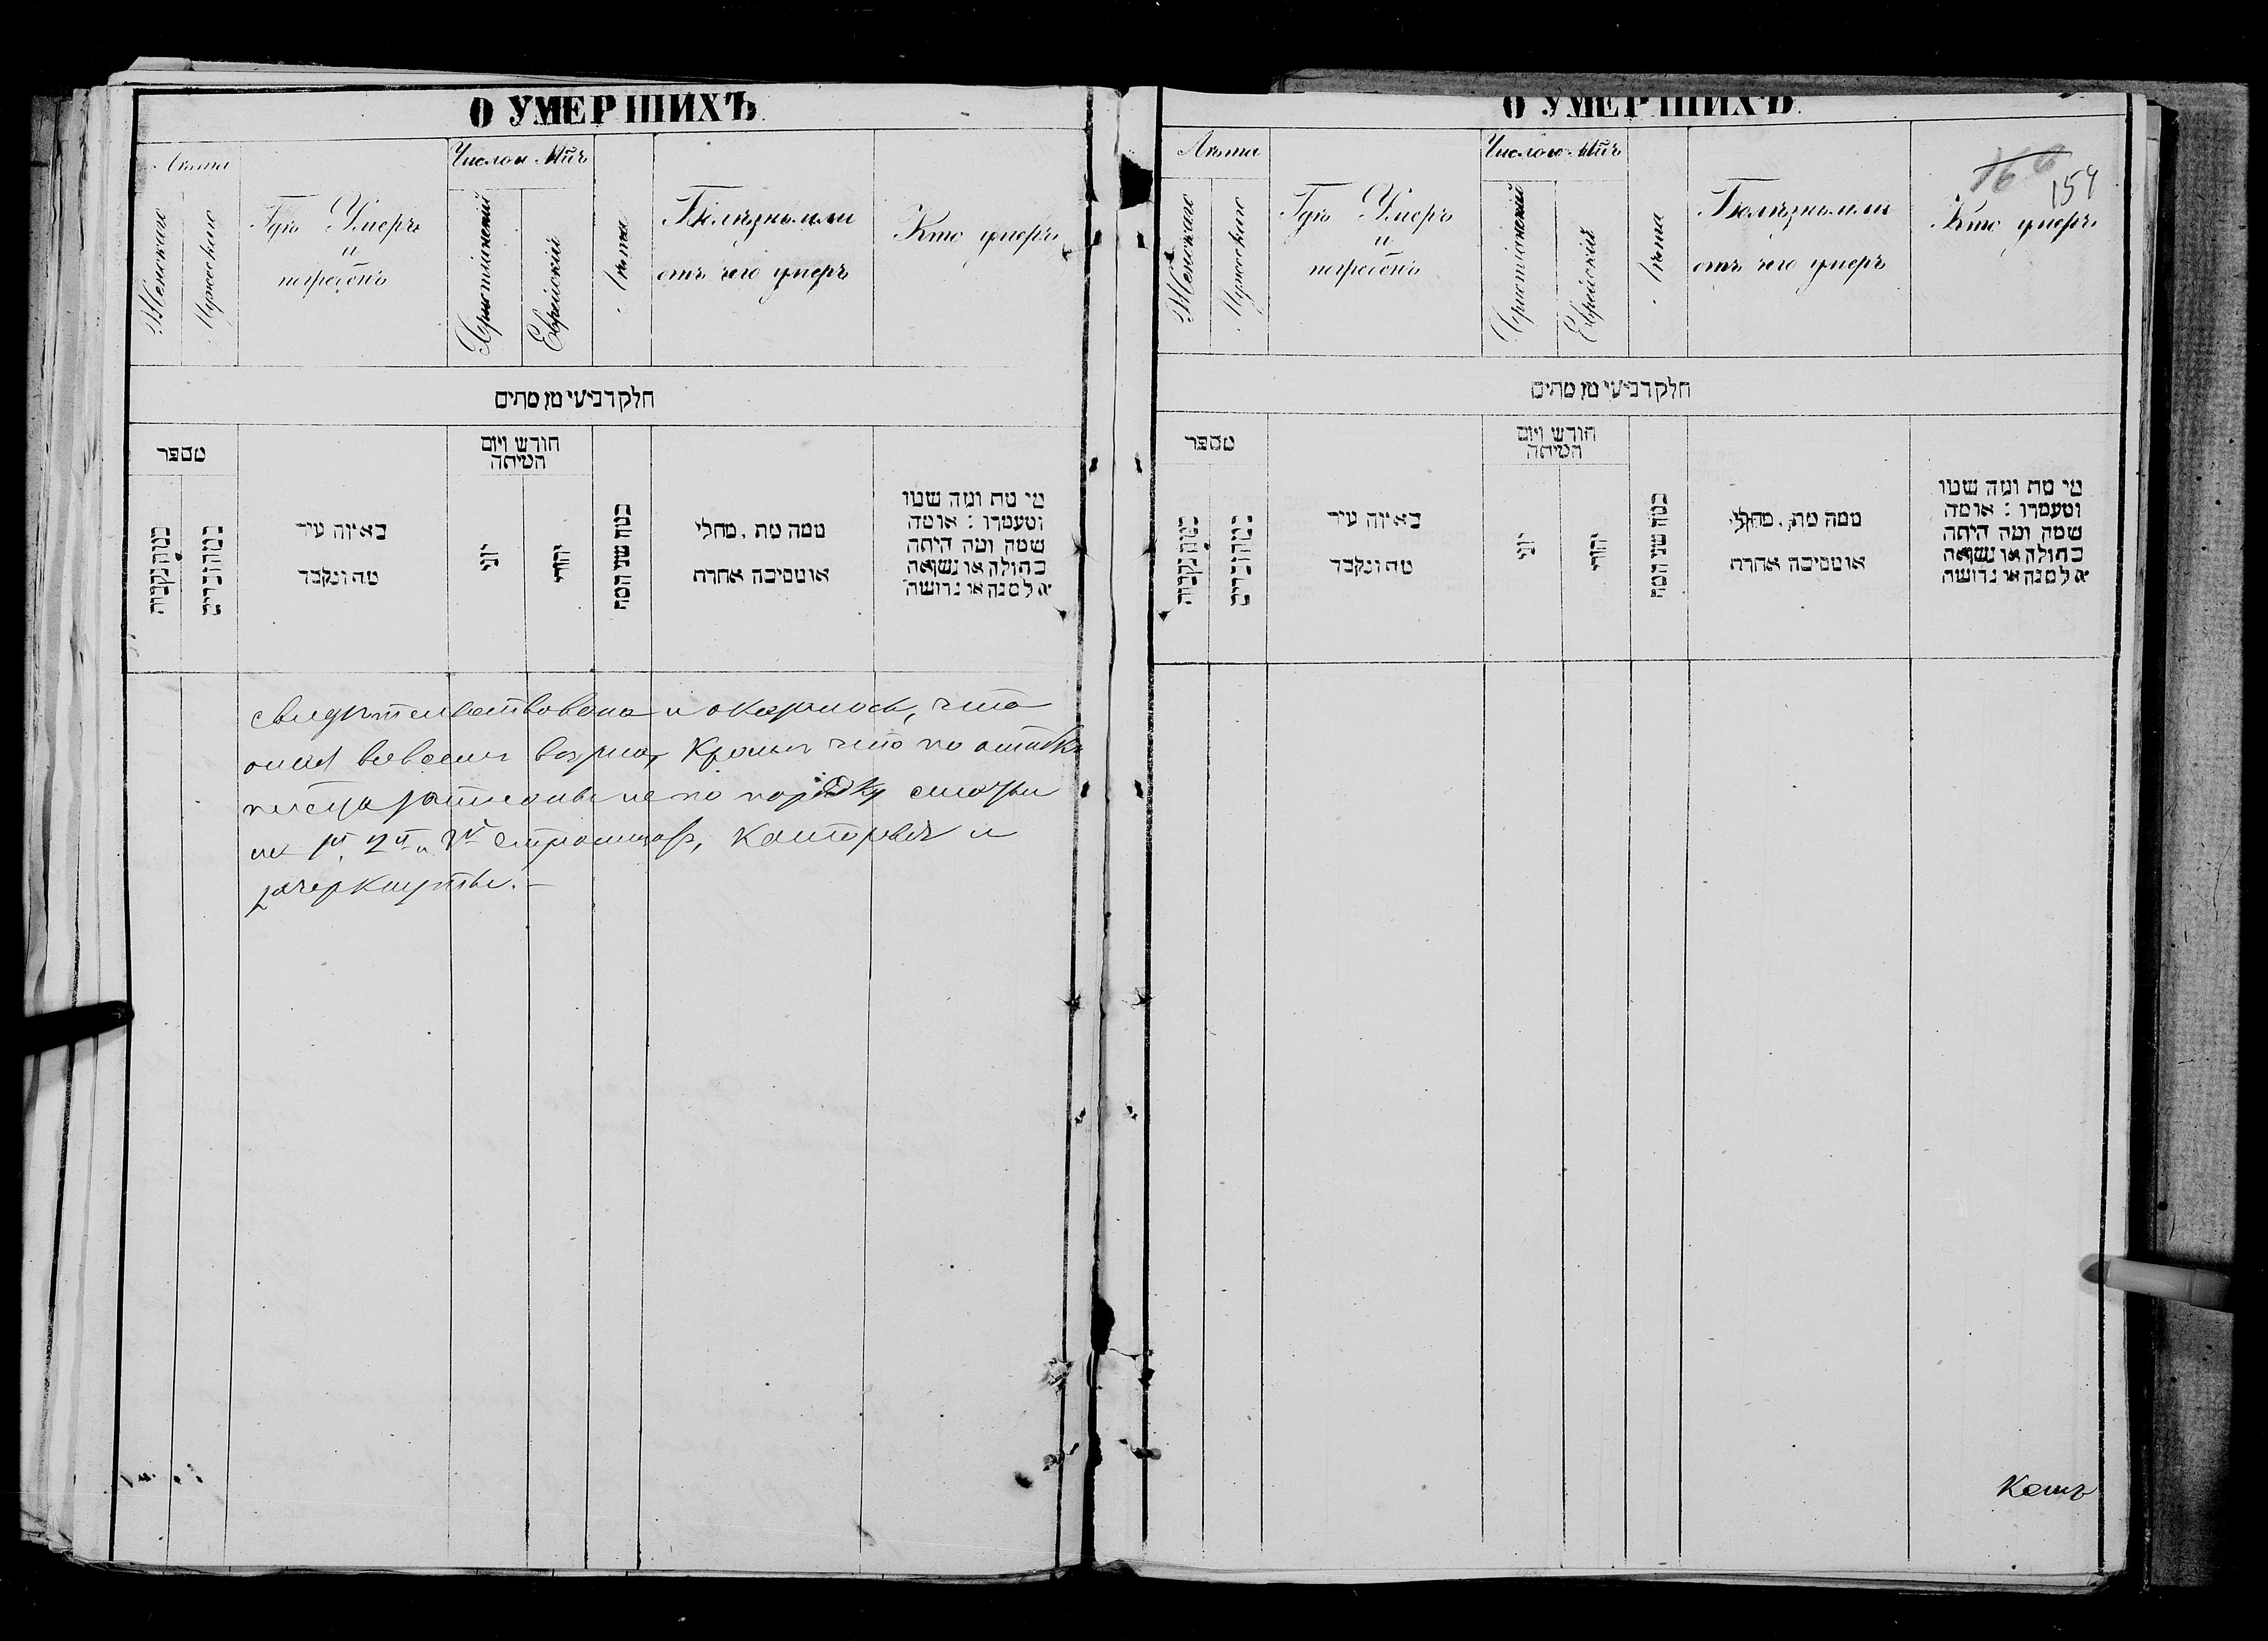 О УМЕРШИХЪ
Лѣта
Женскаго
Мужескаго
Гдѣ Умеръ
и
погребенъ
Число и Мц̃ъ
Христіянскій
Еврейскій
Лѣта
Болѣзнь или
отъ чего умеръ
Кто умеръ
חלק רביעי מן מתים
מספר
כמה נקבות
כמה זכרים
באיזה עיר
מת ונקבר
חודש ויום
המיתה
יוני
יהודי
כמה שני המת
ממה מת, מחלי
או מסיבה אחרת
מי מת ומה שמו
ומעמדו : או מה
שמה ומה היתה
בתולה או נשואה
אלמנה או גרושה
свидѣтельствована и оказалось, что
оная во всемъ вѣрна, кромѣ что по ошибкѣ
писца записаны не по порядку
на 1й, 2й и страницахъ, которыя и
зачеркнуты. –
О УМЕРШИХЪ.
160
159
Лѣта
Женскаго
Мужескаго
Гдѣ Умеръ
и
погребенъ
Число и Мц̃ъ
Христіянскій
Еврейскій
Лѣта
Болѣзнь или
отъ чего умеръ
Кто умеръ
חלק רביעי מן מתים
מספר
כמה נקבות
כמה זכרים
באיזה עיר
מת ונקבר
חודש ויום
המיתה
יוני
יהודי
כמה שני המת
ממה מת, מחלי
או מסיבה אחרת
מי מת ומה שמו
ומעמדו : או מה
שמה ומה היתה
בתולה או נשואה
אלמנה או גרושה